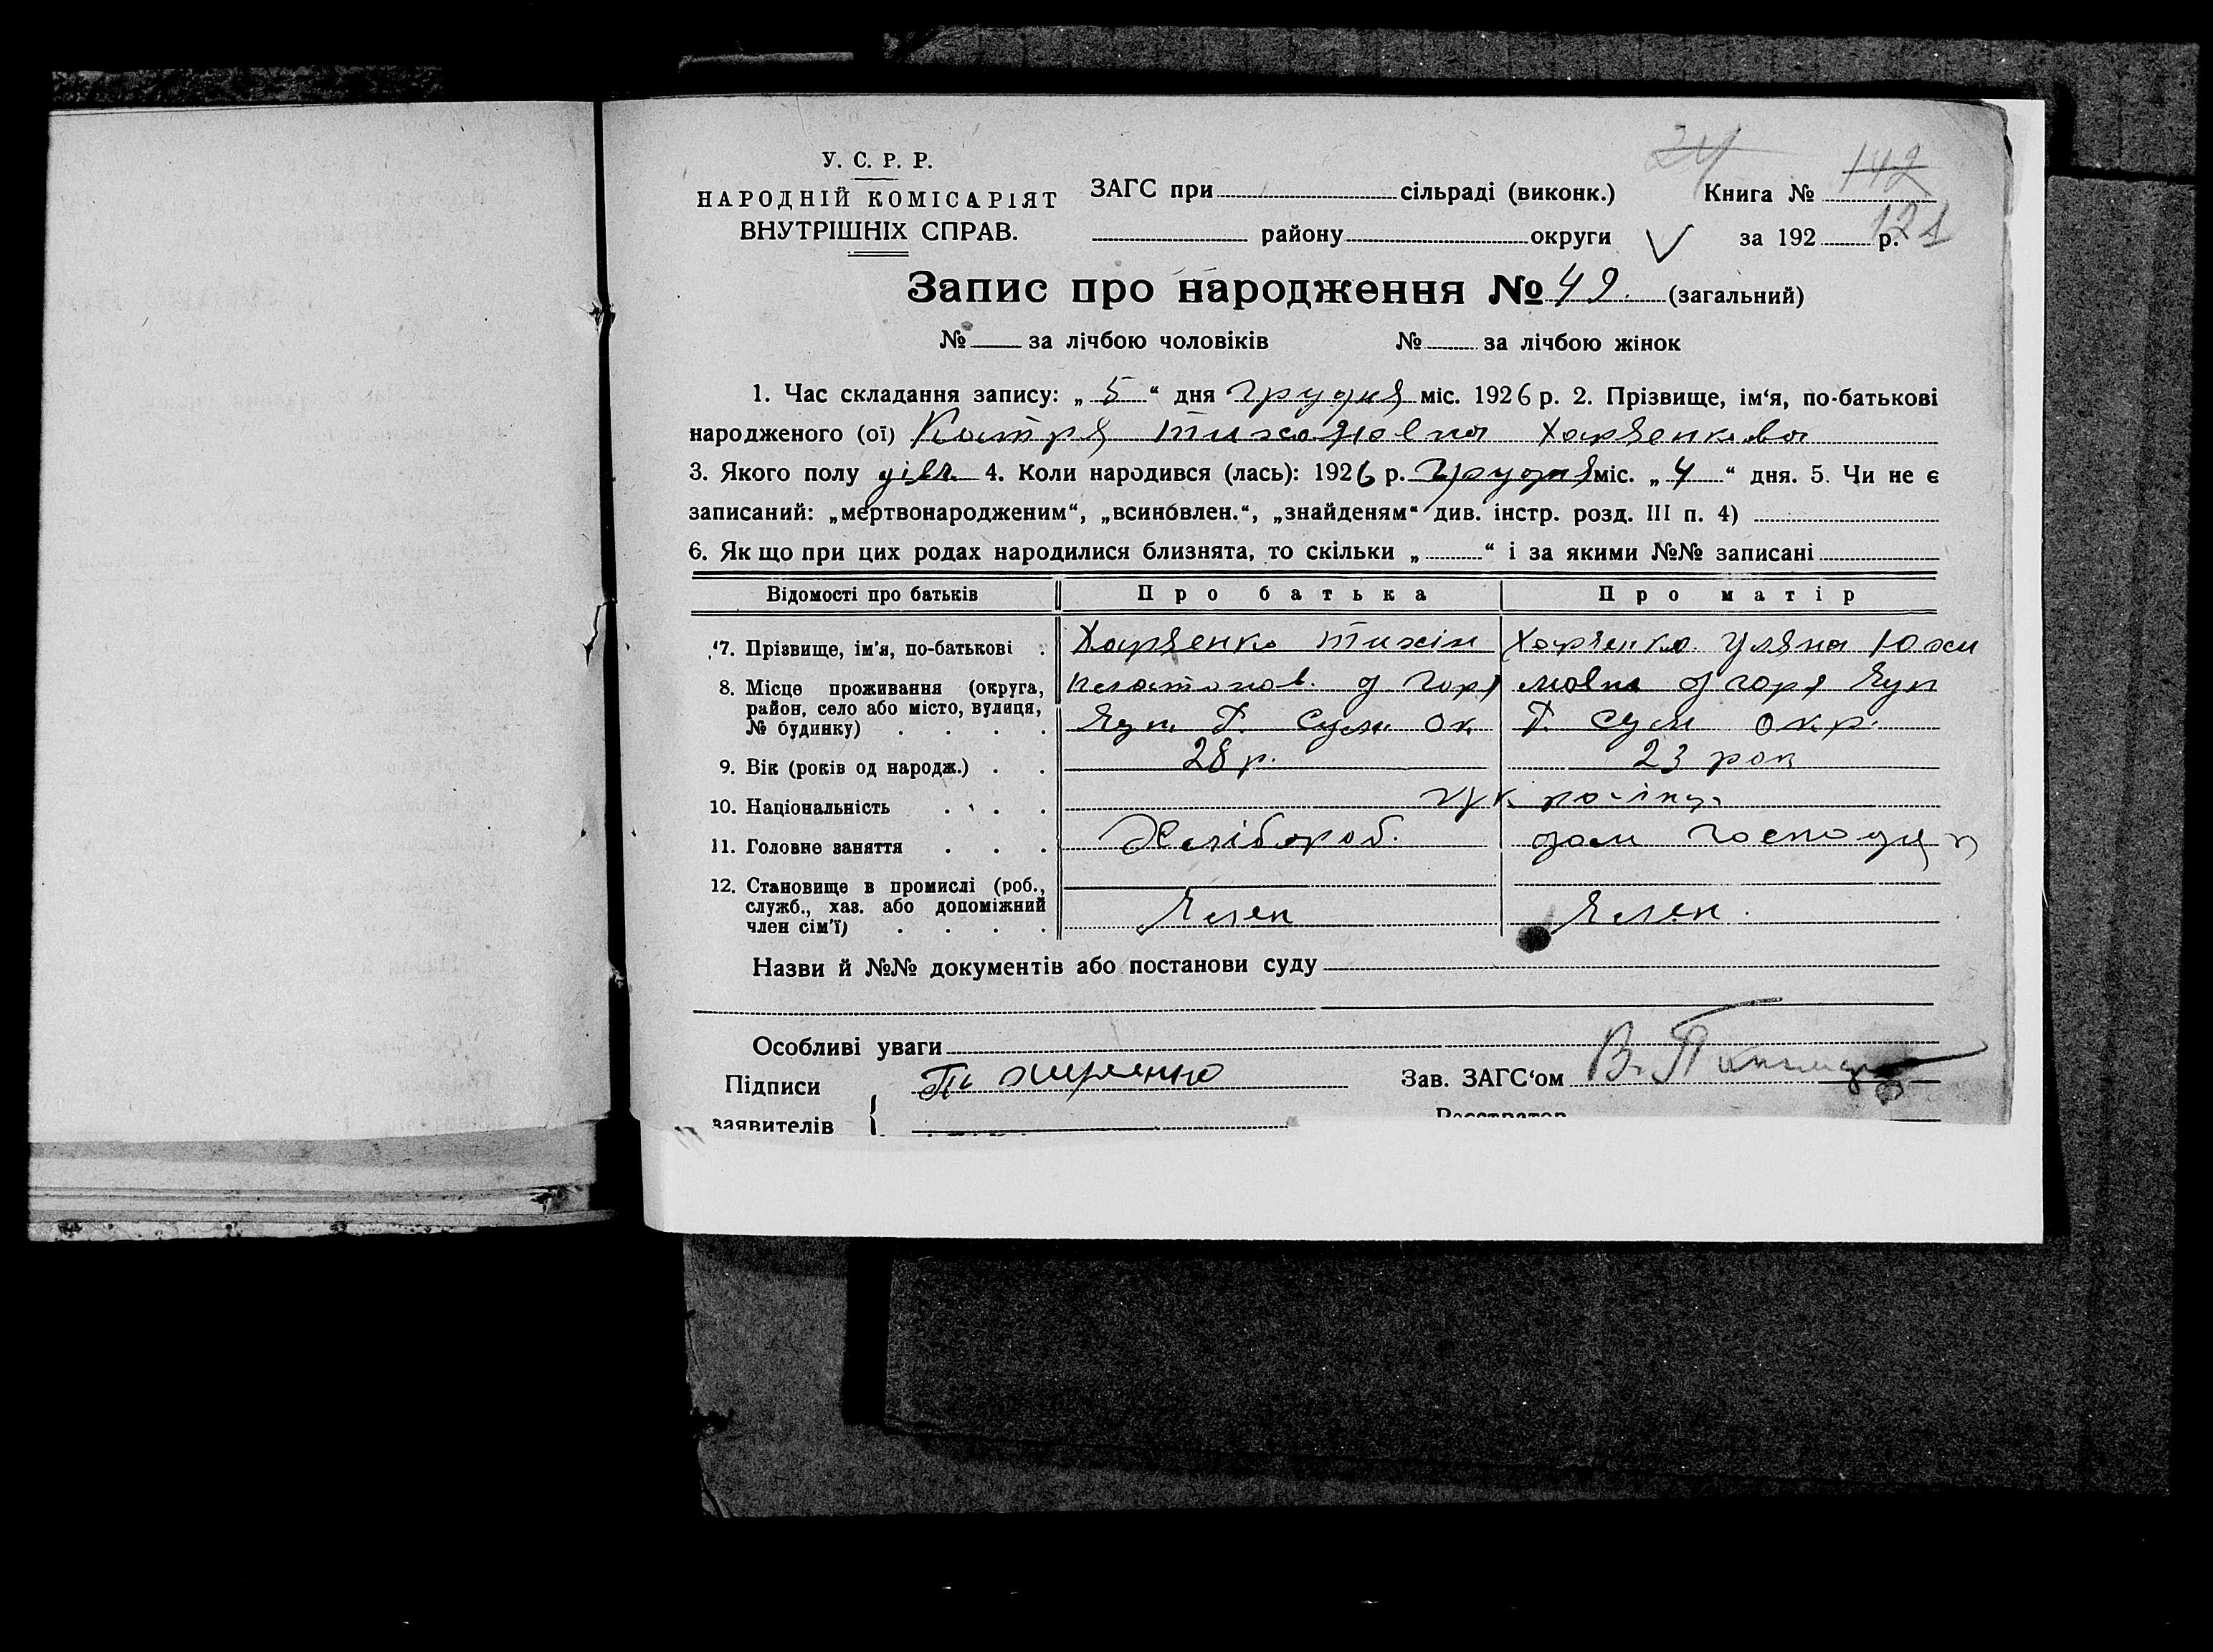 24
142
121
У. С. Р. Р.
НАРОДНІЙ КОМІСАРІЯТ
ВНУТРІШНІХ СПРАВ.
ЗАГС при сільраді (виконк.) Книга №
району округи за 192 р.
Запис про народження № 49. (загальний)
№ за лічбою чоловіків № за лічбою жінок
1. Час складання запису: „ 5 “ дня грудня міс. 1926 р. 2. Прізвище, ім‘я, по-батькові
народженого (ої) Катря Тихоновна
3. Якого полу дівч. 4. Коли народився (лась): 1926 р. Грудня міс. „ 4 “ дня. 5. Чи не є
записаний: „мертвонародженим“, „всиновлен.“, „знайденям“ див. інстр. розд. III п. 4)
6. Як що при цих родах народилися близнята, то скільки „ “ і за якими №№ записані
Відомості про батьків Про батька Про матір
7. Прізвище, ім'я, по-батькові . Харченко Тихін Харченко Уляна Юхи
8. Місце проживання (округа, Платонов. мовна
район, село або місто, вулиця, Р. Сум Ок Р. Сум Окр.
№ будинку) . . . .
9. Вік (років од народж.) . . 28 р. 23 рок
10. Національність . . . українц.
11. Головне заняття . . . Хлібороб. дом господ
12. Становище в промислі (роб.,
служб., хаз. або допоміжний
член сім'ї) . . . . Член Член.
Назви й №№ документів або постанови суду
Особливі уваги
Підписи Зав. ЗАГС‘ом
заявителів {
Реєстратор